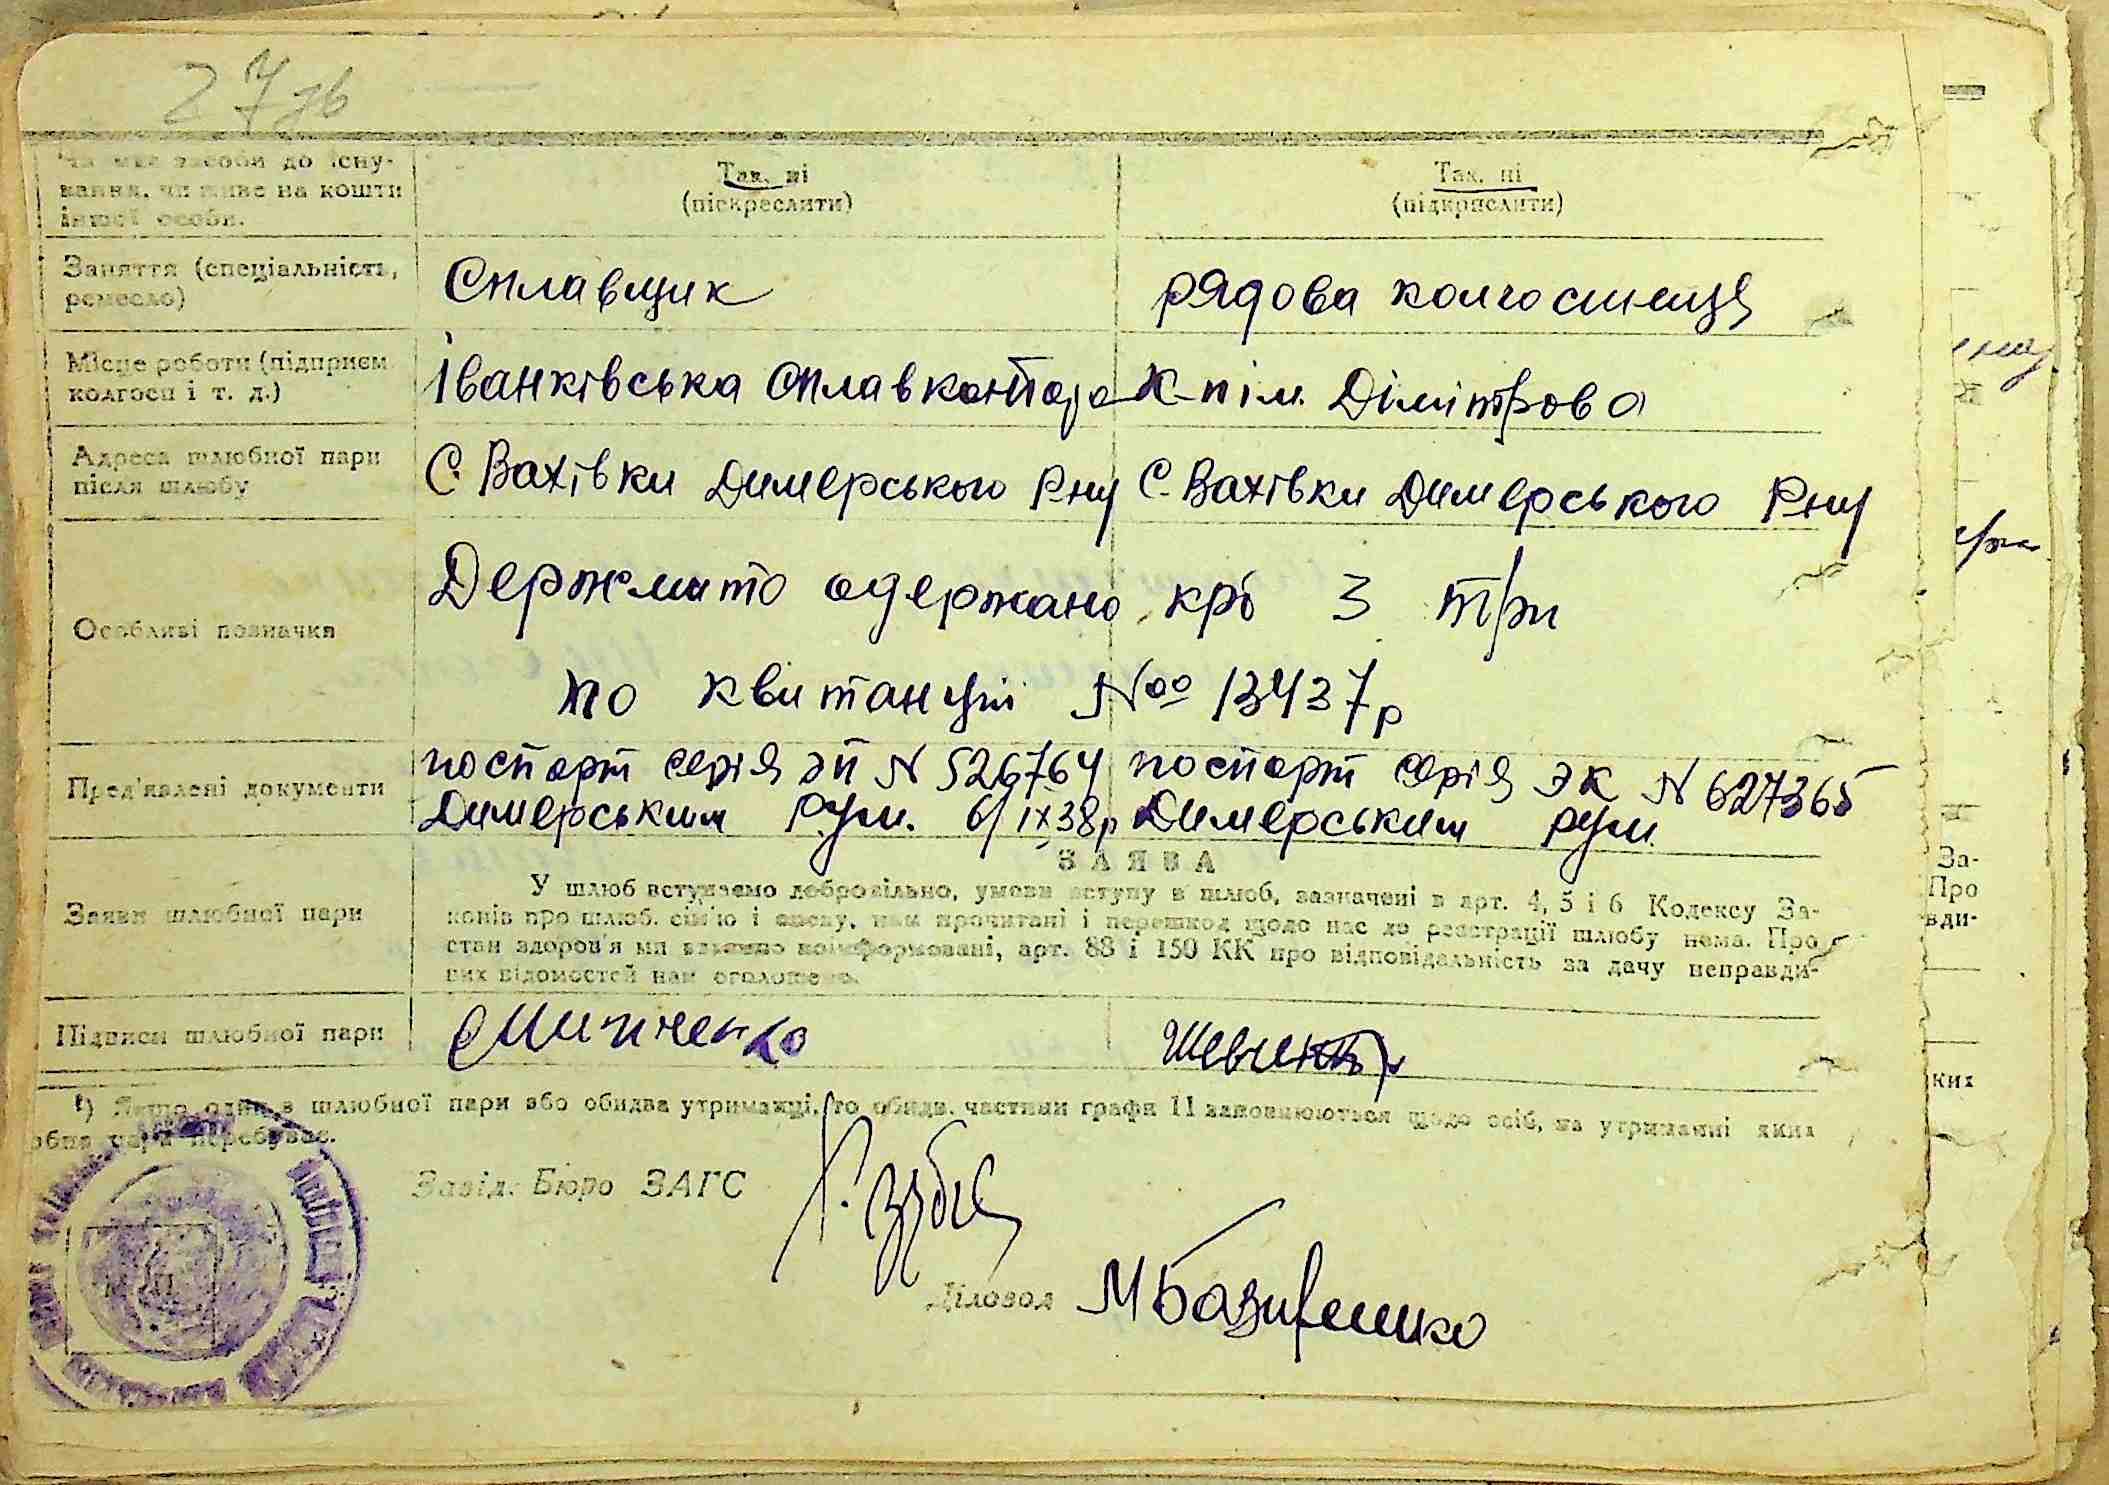 27зв
Чи має засоби до існу-
вання, чи живе на кошти
іншої особи.
Так, ні
(підкреслити)
Так, ні
(підкреслити)
Заняття (спеціальність,
ремесло)
Сплавщик
рядова колгоспниця
Місце роботи (підприєм.
колгосп і т. д.)
Іванківська сплавконтора
К-п ім. Дімітрова
Адреса шлюбної пари
після шлюбу
С. Вахівки Димерського Рну
С. Вахівки Димерського Рну
Особливі позначки
Держмито одержано крб 3 три
по квитанції № 13437р
Пред'явлені документи
паспорт серія ЭП N 526764
Димерським рум. 6/IX38р
паспорт серія ЭК N 627365
Димерським рум
Заяви шлюбної пари
ЗАЯВА
У шлюб вступаємо добровільно, умови вступу в шлюб, зазначені в арт. 4, 5 і 6 Кодексу За-
конів про шлюб, сім'ю і опеку, нам прочитані і перешкод щодо нас до реєстрації шлюбу нема. Про
стан здоров'я ми взаємно поінформовані, арт. 88 і 150 КК про відповідальність за дачу неправди-
вих відомостей нам оголошено.
Підписи шлюбної пари
¹) Якщо один з шлюбної пари або обидва утриманці, то обидв. частини графи 11 заповнюються щодо осіб, на утриманні яких
обна пара перебуває.
Завід. Бюро ЗАГС
Діловод
За-
Про
вди-
ких